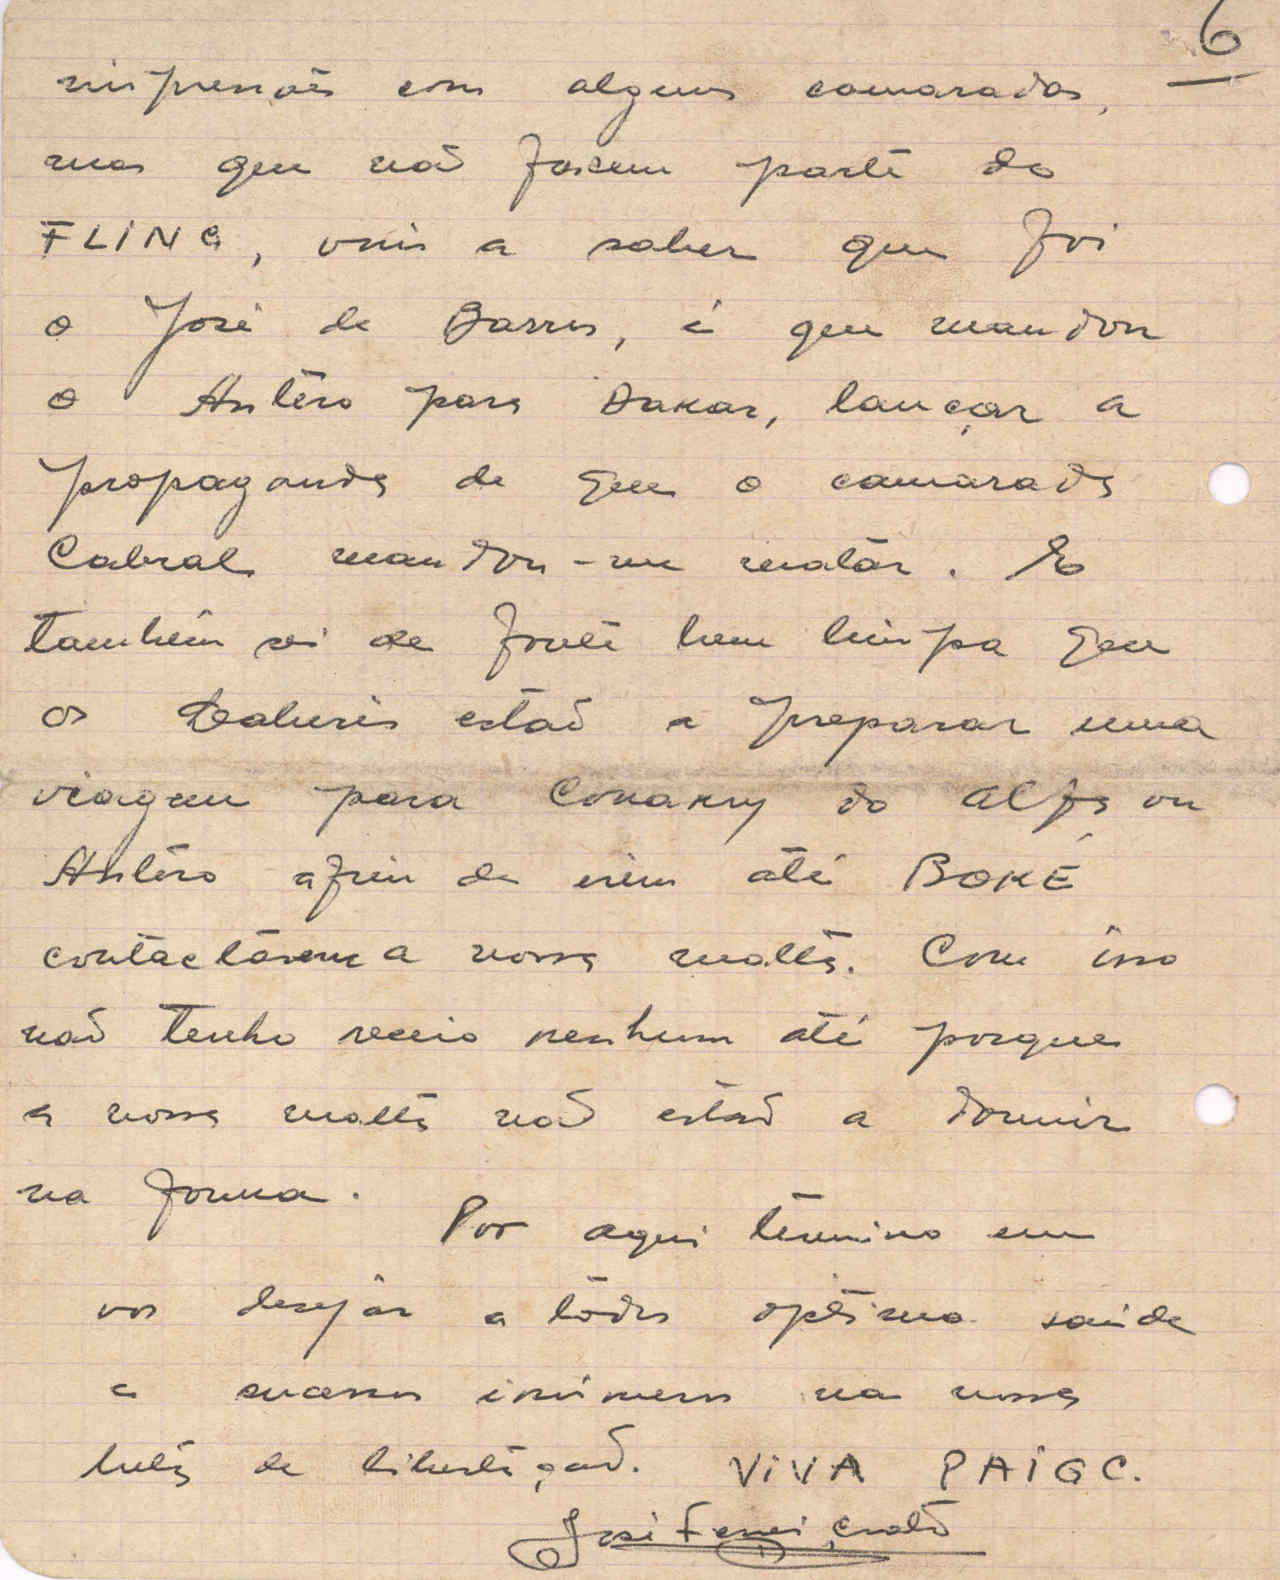 6
impressões com alguns camaradas,
mas que não fossem parte do
FLING, vim a saber que foi
o José de Barros, é que mandou
o Antéro para Dakar, lançar a
propaganda de que o camarada
Cabral mandou-me matar. Eu
também sei de fonte bem limpa que
os estão a preparar uma
viagem para Conakry do Alfa ou
Antéro afim de irem até BOKÉ
contactárem a nossa malta. Com isso
não tenho receio nenhum até porque
a nossa malta não estão a dormir
na forma.
Por aqui términio em
vos desejár a tôdos óptima saúde
e sucessos inúmeros na nossa
luta de libertação. VIVA PAIGC.
José